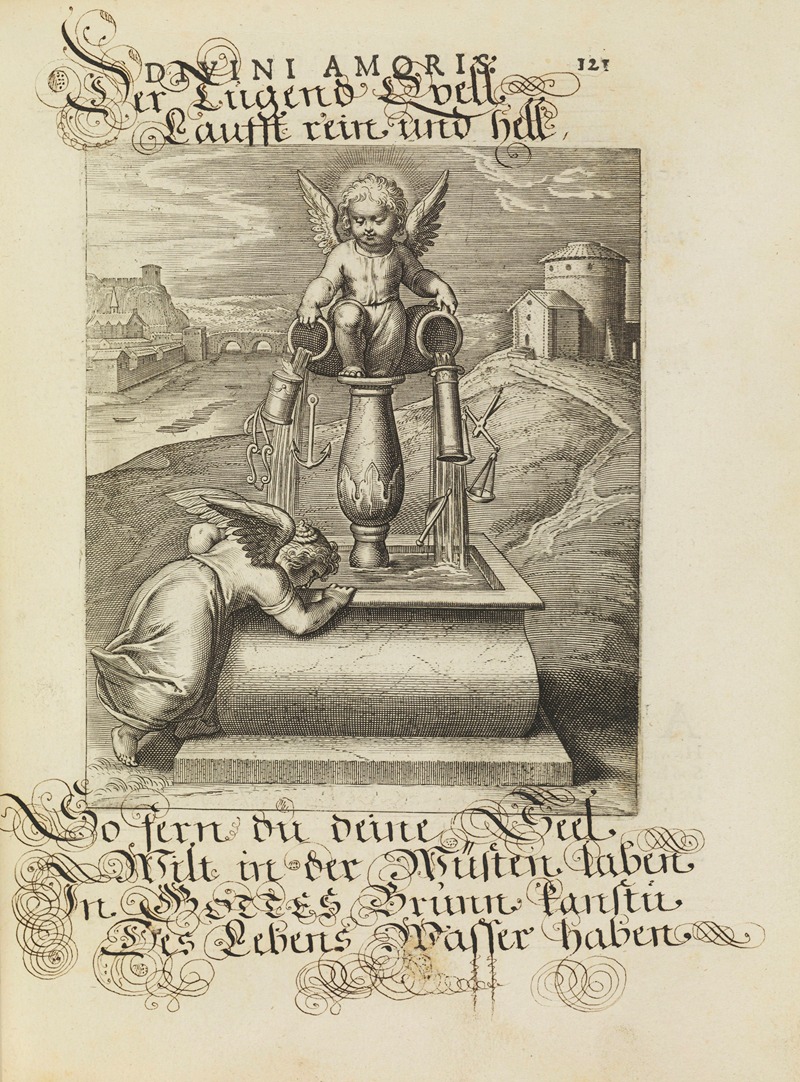 DIVINI AMORIS. 121
Der Tugend Qvell
Laufft rein und hell,
So fern du deine Seel
Wilt in der Wüsten laben
In GOTTES Brunn kanstu
Des Lebens Wasser haben